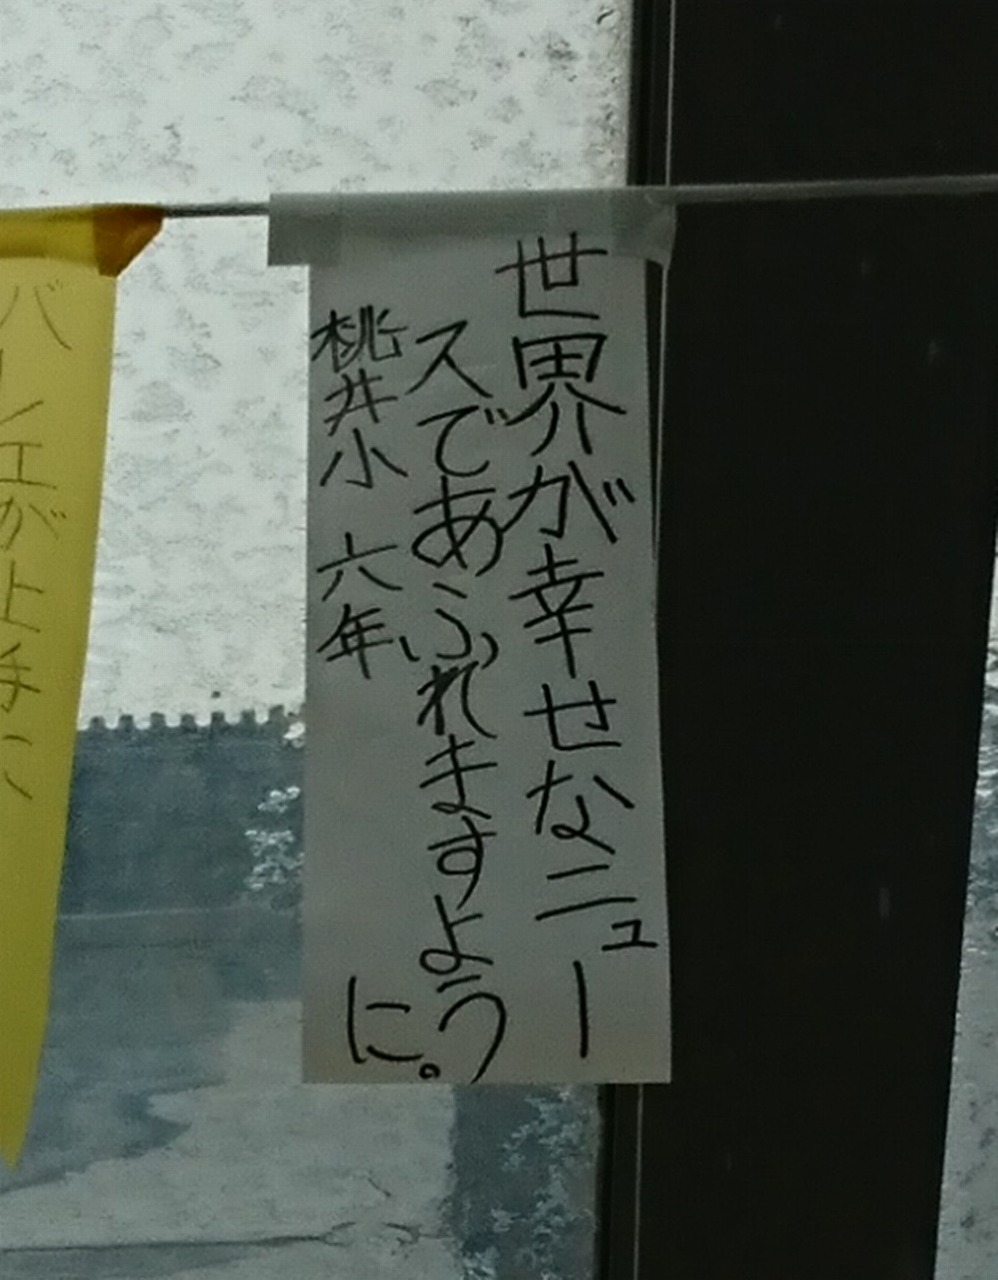 世界が幸せなニュー
スであふれますよう
に。
桃井小 六年
バレエが上手に